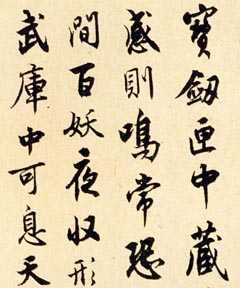 寶劔匣中藏
感則鳴常恐
間百妖夜収形
武庫中可息天